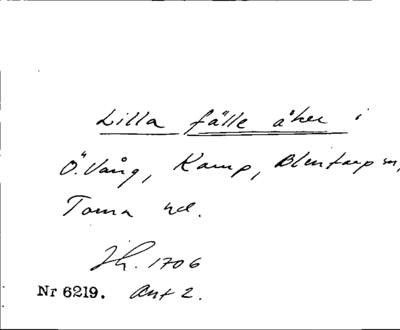 Lilla fälle åker i
Ö. Vång, Kamp, Blentarp sn,
Torna hd.
Jh. 1706
Nr 6219. Akt 2.